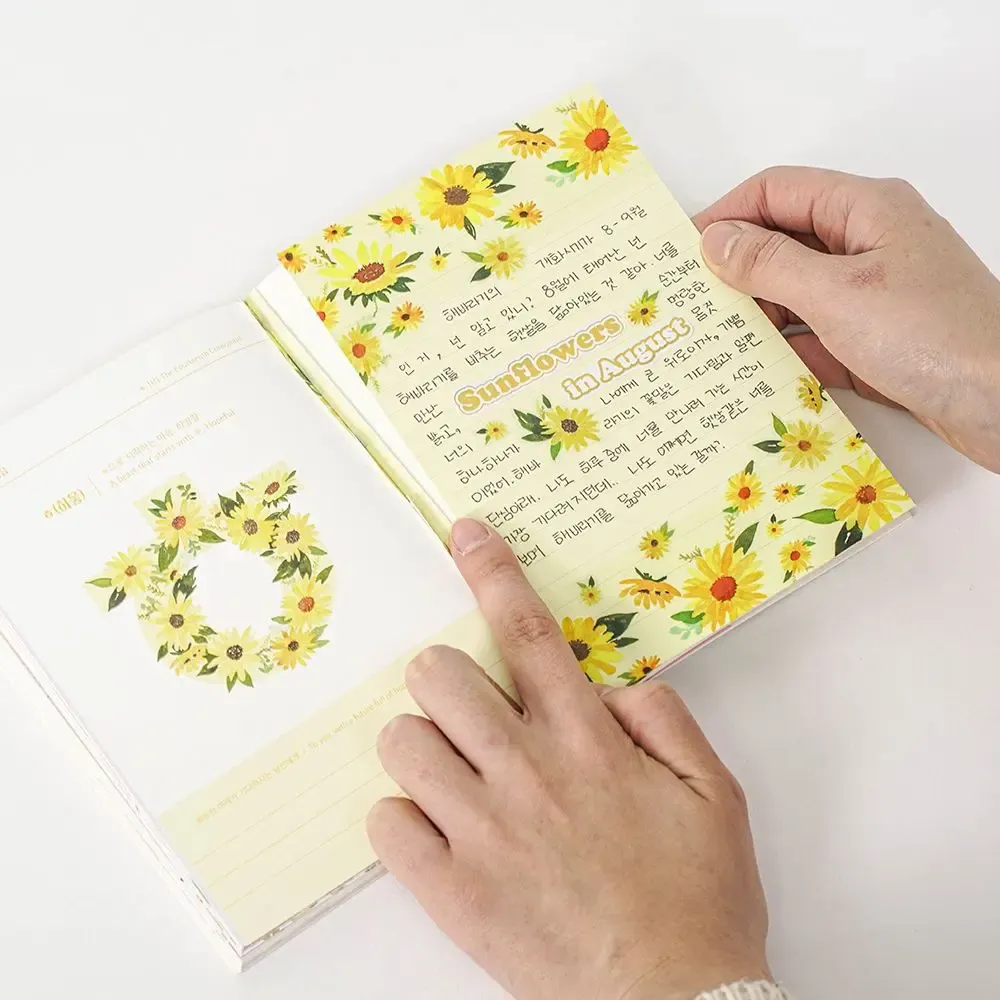 The Fourteenth Consonant
ㅎ(히읗)
ㅎ으로 시작하는 마음,
A heart that starts with ㅎ: Hopeful
To you, with a future full of
해바라기의 개화시기가 8-9월
인 거, 넌 알고 있니? 8월에 태어난 넌
해바라기를 비추는 햇살을 닮아있는 것 같아. 너를
만난 순간부터
밝고, 명랑한
너의 몸짓
Sunflowers
in August
하나하나가 나에게 큰 위로이자, 기쁨
이었어. 해바라기의 꽃말은 기다림과 일편
단심이래. 나도 하루 중에 너를 만나러 가는 시간이
가장 기다려지던데.. 나도 어쩌면 햇살같은 너를
보며 해바라기를 닮아가고 있는 걸까?